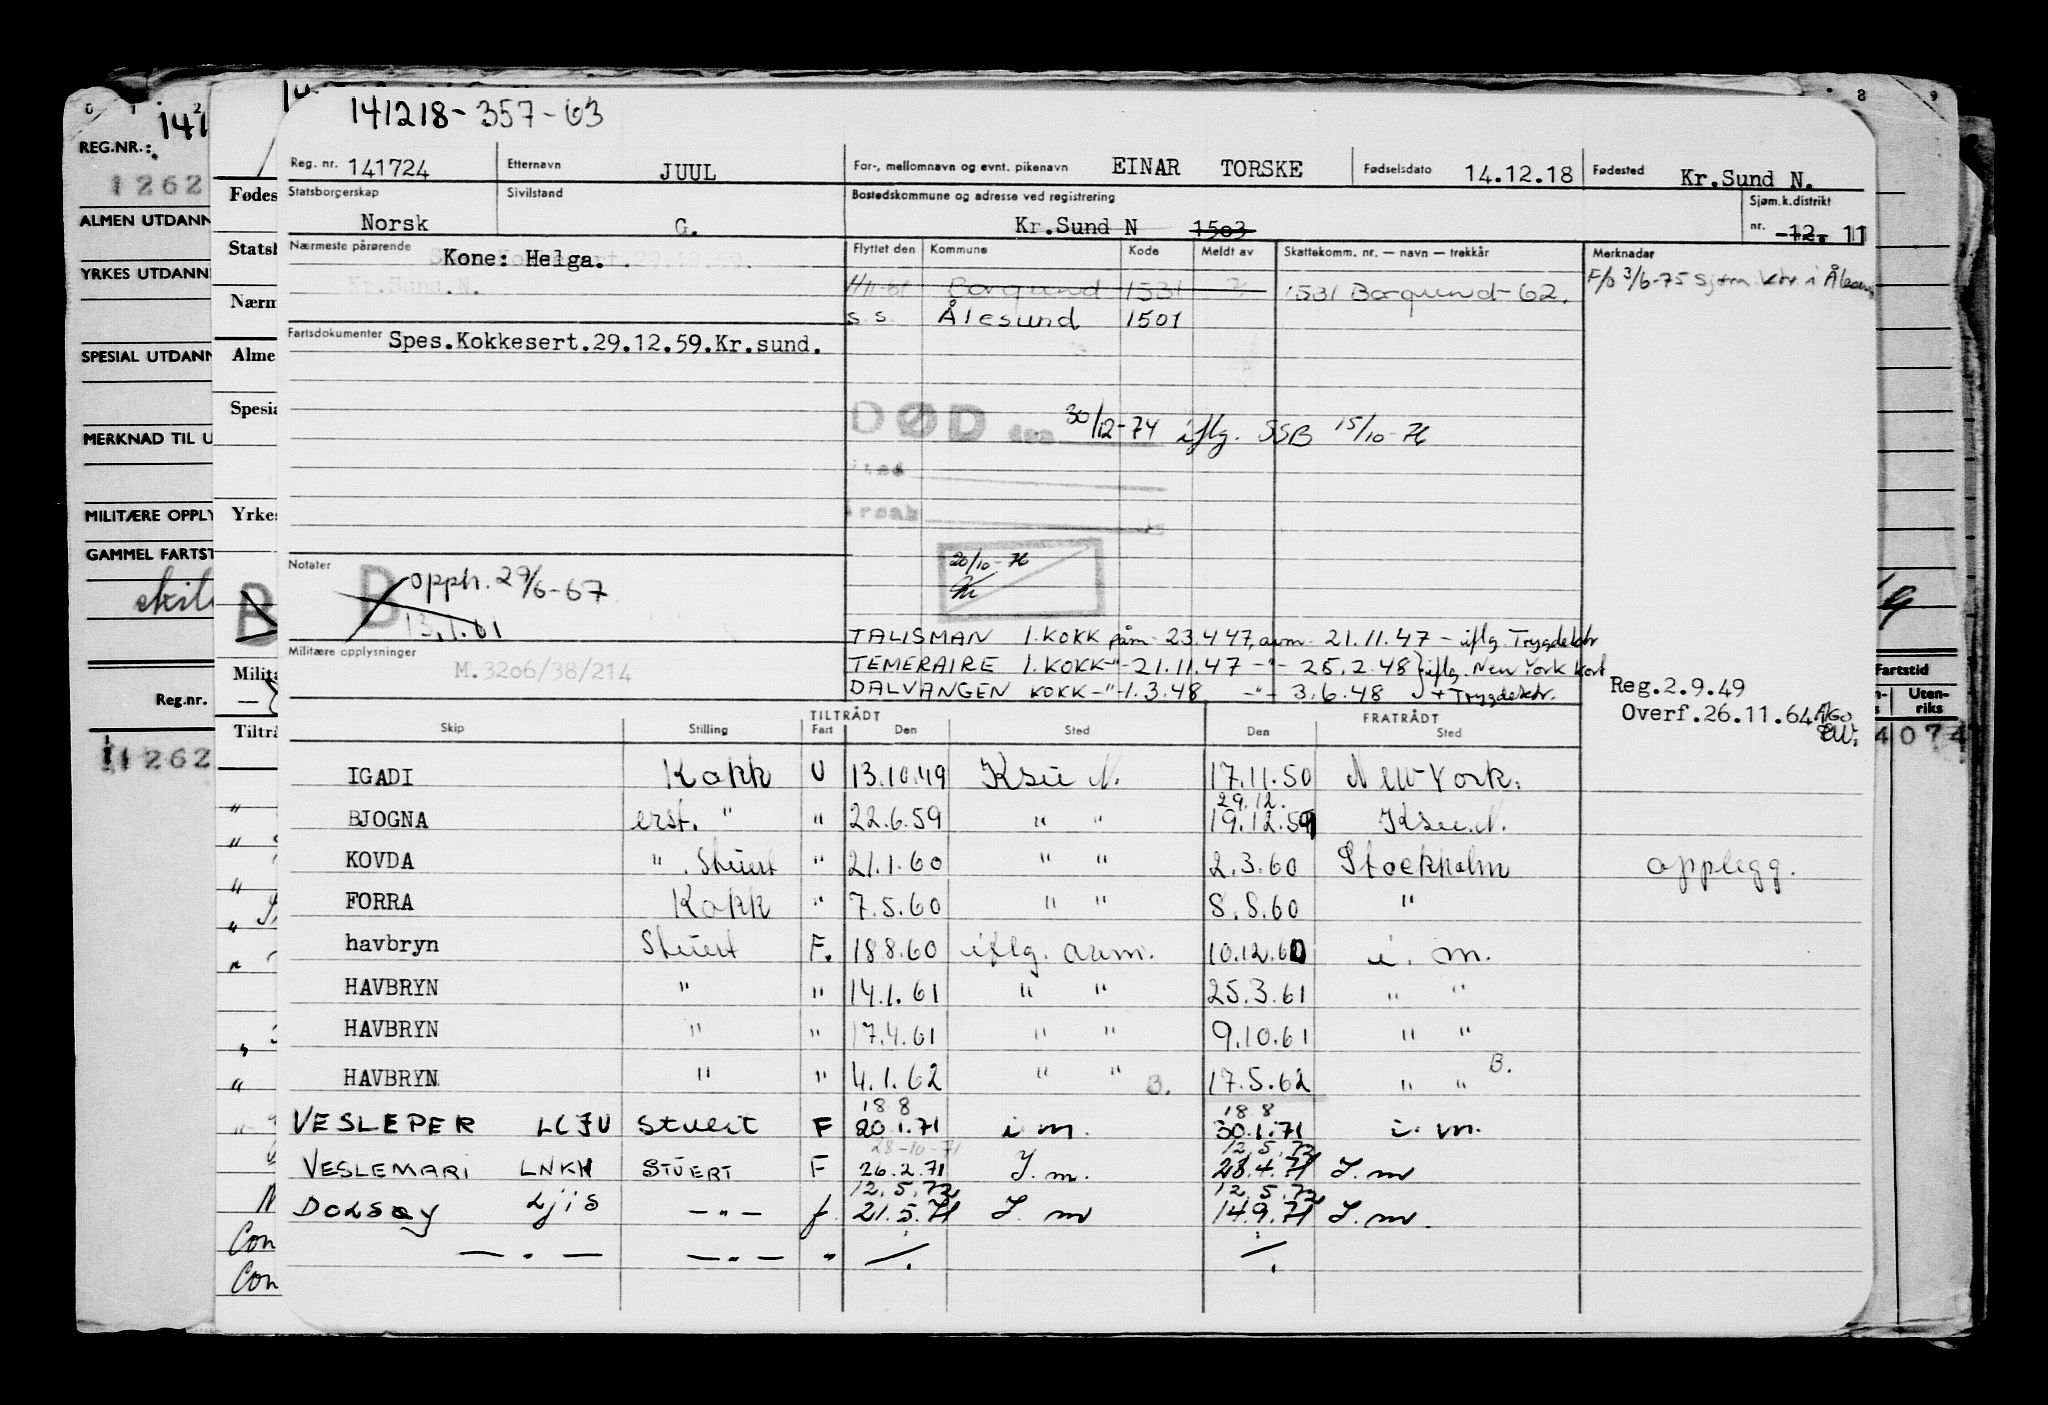 141218-357-63
Reg. nr. 141724 Etternavn JUUL For-, mellomnavn og evnt. pikenavn EINAR TORSKE Fødselsdato 14.12.18 Fødested Kr.Sund N.
Statsborgerskap Norsk Sivilstand G. Bostedskommune og adresse ved registrering Kr.Sund N 1503 Sjøm.k.distrikt nr. 12. 11
Nærmeste pårørende Kone: Helga. Flyttet den Kommune Kode Meldt av Skattekomm. nr. — navn — trekkår Merknader
Kr.Sund.N. Borgund 1531 1531 Borgund 62. F/b 3/6-75 Sjøm. ktr i
s.s. Ålesund 1501
Fartsdokumenter Spes.Kokkesert.29.12.59.Kr.sund.
DØD den 30/12-74 iflg. SSB 15/10-76
sted
årsak
20/10-76
Notater B opph. 29/6-67
13.1.61
Militære opplysninger M.3206/38/214
TALISMAN 1.KOKK påm. 23.4.47, avm. 21.11.47 - iflg. Trygdektr
TEMERAIRE 1.KOKK -"- 21.11.47 -"- 25.2.48 } iflg. New York kort
DALVANGEN KOKK -"- 1.3.48 -"- 3.6.48 + Trygdektr.
Reg.2.9.49
Overf.26.11.64
TILTRÅDT FRATRÅDT
Skip Stilling Fart Den Sted Den Sted
IGADI Kokk U 13.10.49 Ksu N. 17.11.50 New York.
29.12.
BJOGNA erst. " " 22.6.59 " " 19.12.59 Ksu.N.
KOVDA " Stuert " 21.1.60 " " 2.3.60 Stockholm opplegg.
FORRA Kokk " 7.5.60 " " 8.8.60 "
havbryn Stuert F. 18.8.60 iflg. avm. 10.12.60 i. m.
HAVBRYN " " 14.1.61 " " 25.3.61 " "
HAVBRYN " " 17.4.61 " " 9.10.61 " "
HAVBRYN " " 4.1.62 " " B. 17.5.62 " " B.
18 8 18 8
VESLEPER LCJU Stuert F 20.1.71 i m. 30.1.71 i. m.
28-10-71 12.5.72
VESLEMARI LNKH STUERT F 26.2.71 I.m. 28.4.71 I.m
12.5.72 12.5.72
DOLSØY LJIS -"- f. 21.5.71 I. m 14.9.71 I.m.
— " — — " — "
REG.NR.:
1262
ALMEN UTDANN
YRKES UTDANN
SPESIAL UTDANN
MERKNAD TIL U
MILITÆRE OPPLY
GAMMEL FARTST
Reg.nr.
11262
Fødes
Stats
Nærm
Alme
Spesia
Yrke
B
Milita
Tiltrå
Con
Con
Fartstid
Uten-
riks
4074